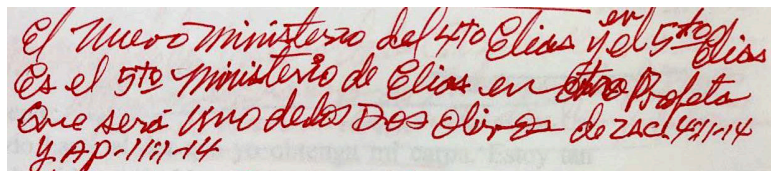 El Nuevo Ministerio del 4to Elias y en el 5to Elias
Es el 5to Ministerio de Elias en otro Profeta
Que será Uno de los Dos Olivos de ZAC. 4:11-14
y AP-11:1-14
yo obtenga mi carpa. Estoy tan